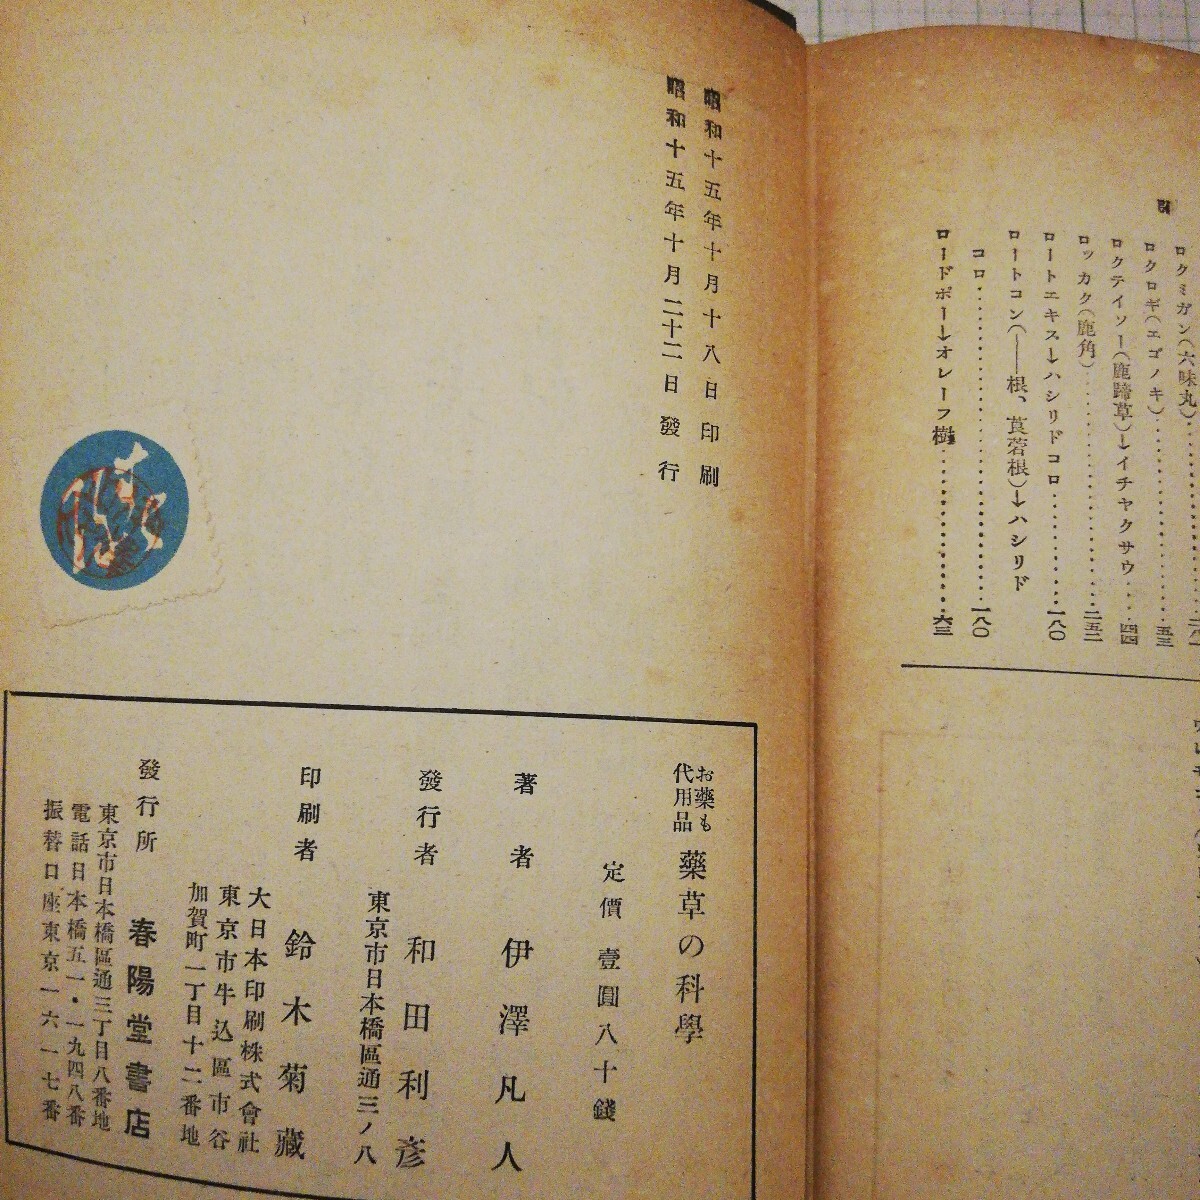 ロクミガン(六味丸)
ロクロギ(エゴノキ)……五三
ロクテイソー(鹿蹄草)→イチヤクサウ……四四
ロッカク(鹿角)……二五二
ロートエキス→ハシリドコロ……一八〇
ロートコン(——根、莨菪根)→ハシリド
コロ……一八〇
ロードボー→オレーフ樹……六三
昭和十五年十月十八日印刷
昭和十五年十月二十二日發行
お藥も
代用品
藥草の科學
定價壹圓八十錢
著者 伊澤凡人
發行者 和田利彦
東京市日本橋區通三ノ八
印刷者 鈴木菊藏
大日本印刷株式會社
東京市牛込區市谷
加賀町一丁目十二番地
發行所 春陽堂書店
東京市日本橋區通三丁目八番地
電話日本橋五一・一九四八番
振替口座東京一六一七番